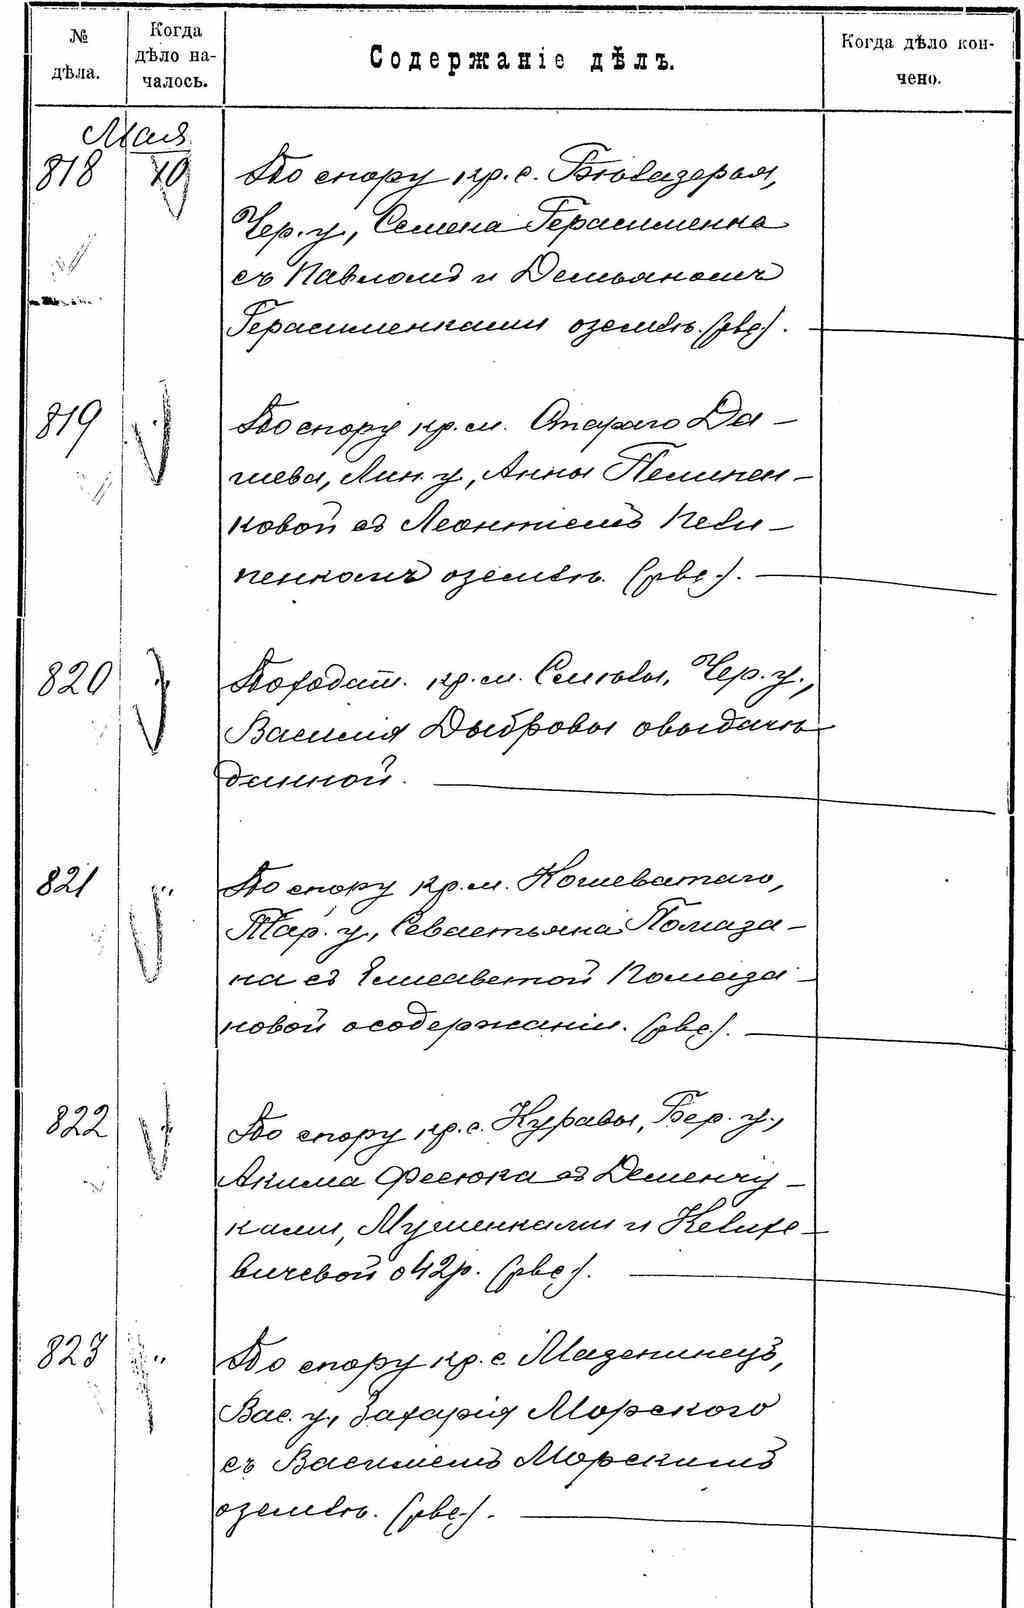 № дѣла.
Когда дѣло началось.
Содержаніе дѣлъ.
Когда дѣло кончено.
Мая
818 10 По спору кр. с. Бѣлазерья,
Чер. у., Семена Герасименка
съ Павломъ и Демьяномъ
Герасименками о землѣ. (рве).
819 По спору кр. м. Стараго Да-
шева, Лип. у., Анны Пелипен-
ковой съ Леонтіемъ Пели-
пенкомъ о землѣ. (рве).
820 По ходат. кр. м. Смѣлы, Чер. у.,
Василія Дыбровы о выдачѣ
данной.
821 " По спору кр. м. Кошеватаго,
Тар. у., Севастьяна Помаза-
на съ Елисаветой Помаза-
новой о содержаніи. (рве).
822 По спору кр. с. Журавы, Бер. у.,
Акима Фесюка съ Деменчу-
ками,
вичевой о 42 р. (рве).
823 " По спору кр. с. Мазепинецъ,
Вас. у., Захарія Морского
съ Василіемъ Морскимъ
о землѣ. (рве).